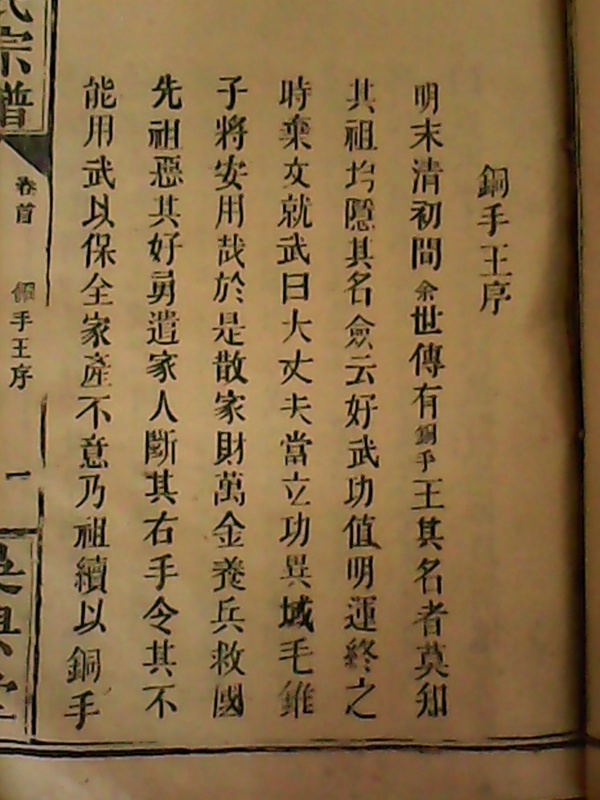 銅手王序
明末清初間余世傳有銅手王其名者莫知
其祖均隱其名僉云好武功值明運終之
時棄文就武曰大丈夫當立功異域毛錐
子將安用哉於是散家財萬金養兵救國
先祖惡其好勇遣家人斷其右手令其不
能用武以保全家產不意乃祖續以銅手
氏宗譜
卷首
銅手王序
一